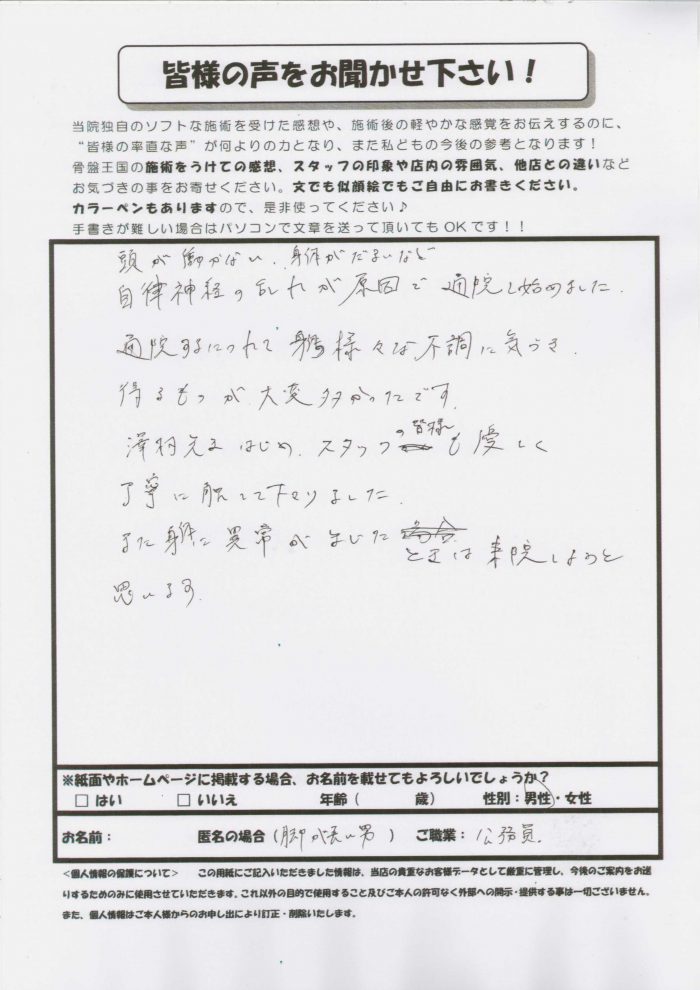 皆様の声をお聞かせ下さい！
当院独自のソフトな施術を受けた感想や、施術後の軽やかな感覚をお伝えするのに、
“皆様の率直な声”が何よりの力となり、また私どもの今後の参考となります！
骨盤王国の施術をうけての感想、スタッフの印象や店内の雰囲気、他店との違いなど
お気づきの事をお寄せください。文でも似顔絵でもご自由にお書きください。
カラーペンもありますので、是非使ってください♪
手書きが難しい場合はパソコンで文章を送って頂いてもOKです！！
頭が働かない、身体がだるいなど
自律神経の乱れが原因で通院し始めました。
通院するにつれて身体様々な不調に気づき、
得るものが大変多かったです。
澤村先生はじめ、スタッフの皆様も優しく
丁寧に施して下さりました。
また身体に異常が生じたときは来院しようと
思います。
※紙面やホームページに掲載する場合、お名前を載せてもよろしいでしょうか？
□ はい □ いいえ 年齢（ 歳） 性別：男性・女性
お名前： 匿名の場合（脚が長い男） ご職業：公務員
＜個人情報の保護について＞ この用紙にご記入いただきました情報は、当店の貴重なお客様データとして厳重に管理し、今後のご案内をお送
りするためのみに使用させていただきます。これ以外の目的で使用すること及びご本人の許可なく外部への開示・提供する事は一切ございません。
また、個人情報はご本人様からのお申し出により訂正・削除いたします。